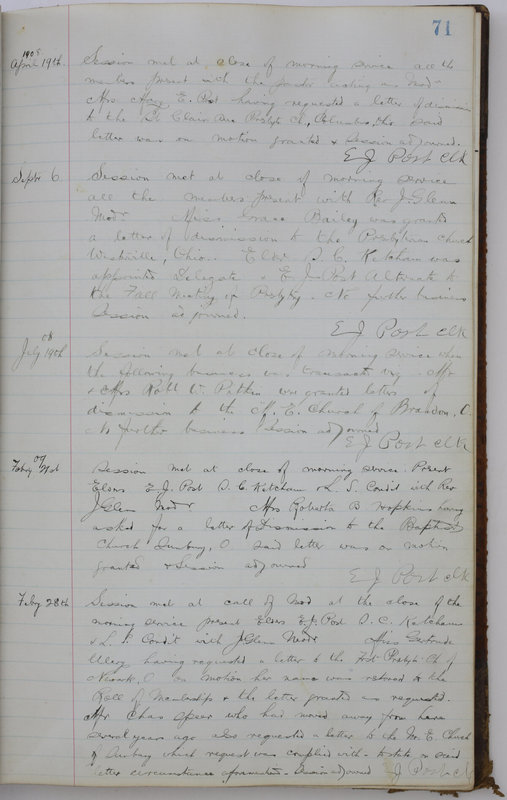 71
1908
April 19th. Session met at close of morning service all the
members present with the pastor acting as Modr
Mrs E. Post having requested a letter of dismission
to the St Clair Ave Presbyt Ch, Columbus, Ohio said
letter was on motion granted & Session adjourned.
E J Post Clk
Septr 6 Session met at close of morning service
all the members present with Rev J Glenn
Modr Miss Grace Bailey was granted
a letter of dismission to the Presbyterian church
Westerville, Ohio. Elder D. C. Ketcham was
appointed Delegate & E J Post Alternate to
the Fall Meeting of Presbytry. No further business
Session adjourned.
E J Post Clk
08
July 19th Session met at close of morning service when
the following business was transacted viz. Mr
& Mrs Robt W. Patkin were granted letters of
dismission to the M. E. Church of Brandon, O.
No further business Session adjourned
E J Post Clk
09
Feby 21st Session met at close of morning service. Present
Elders E. J. Post D. C. Ketcham & L. S. Condit with Rev
J Glenn Modr Mrs Roberta B Hopkins having
asked for a letter of Dismission to the Baptist
Church Sunbury, O. said letter was on motion
granted & Session adjourned
E J Post Clk
Feby 28th Session met at call of Mod at the close of the
morning service present Elders E J Post D. C. Ketcham
& L. S. Condit with J Glenn Modr Miss Gertrude
having requested a letter to the First Presbyt Ch of
Newark, O on motion her name was restored to the
Roll of Membership & the letter granted as requested.
Mr Chas Speer who had moved away from here
several years ago also requested a letter to the M. E. Church
of Sunbury which request was complied with to state in said
letter circumstance Session adjourned J Post Clk